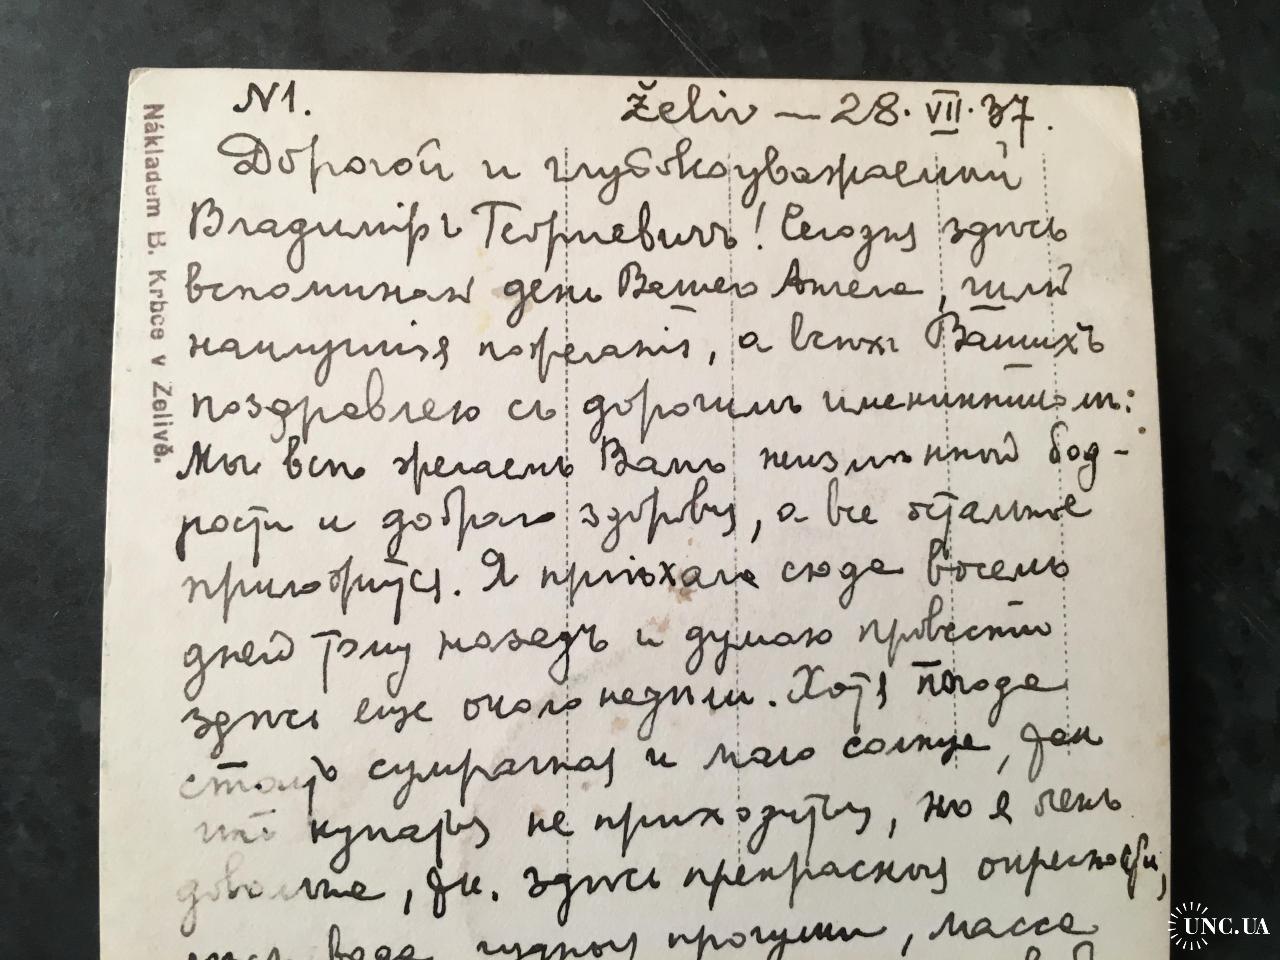 N1. Želiv — 28. VII. 37.
Дорогой и глубокоуважаемый
Владиміръ Георгіевичъ! Сегодня здѣсь
вспоминая день Вашего Ангела, шлю
наилучшія пожеланія, а всѣхъ Вашихъ
поздравляю съ дорогимъ именинникомъ:
Мы всѣ желаемъ Вамъ неизмѣнной бод-
рости и добраго здоровья, а все остальное
приложится. Я пріѣхала сюда восемь
дней тому назадъ и думаю провести
здѣсь еще около недѣли. Хотя погода
стоитъ сумрачная и мало солнца, так
что купаться не приходится, но я очень
довольна, т.к. здѣсь прекрасныя окрестности,
вода, чудныя прогулки, масса
Nákladem B. Krbce v Želivě.
UNC.UA